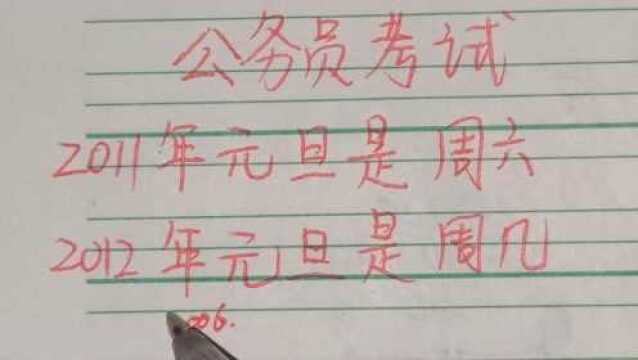 公务员考试
2011年元旦是周六
2012年元旦是周几